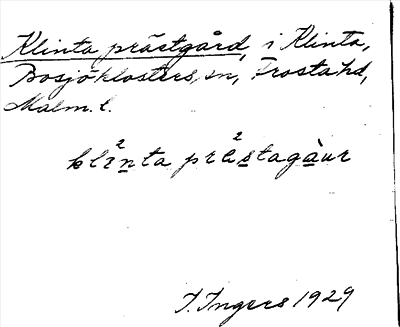 Klinta prästgård, i Klinta,
Bosjöklosters sn, Frosta hd,
Malm. l.
kli²nta prä²stagàur
I. Ingers 1929